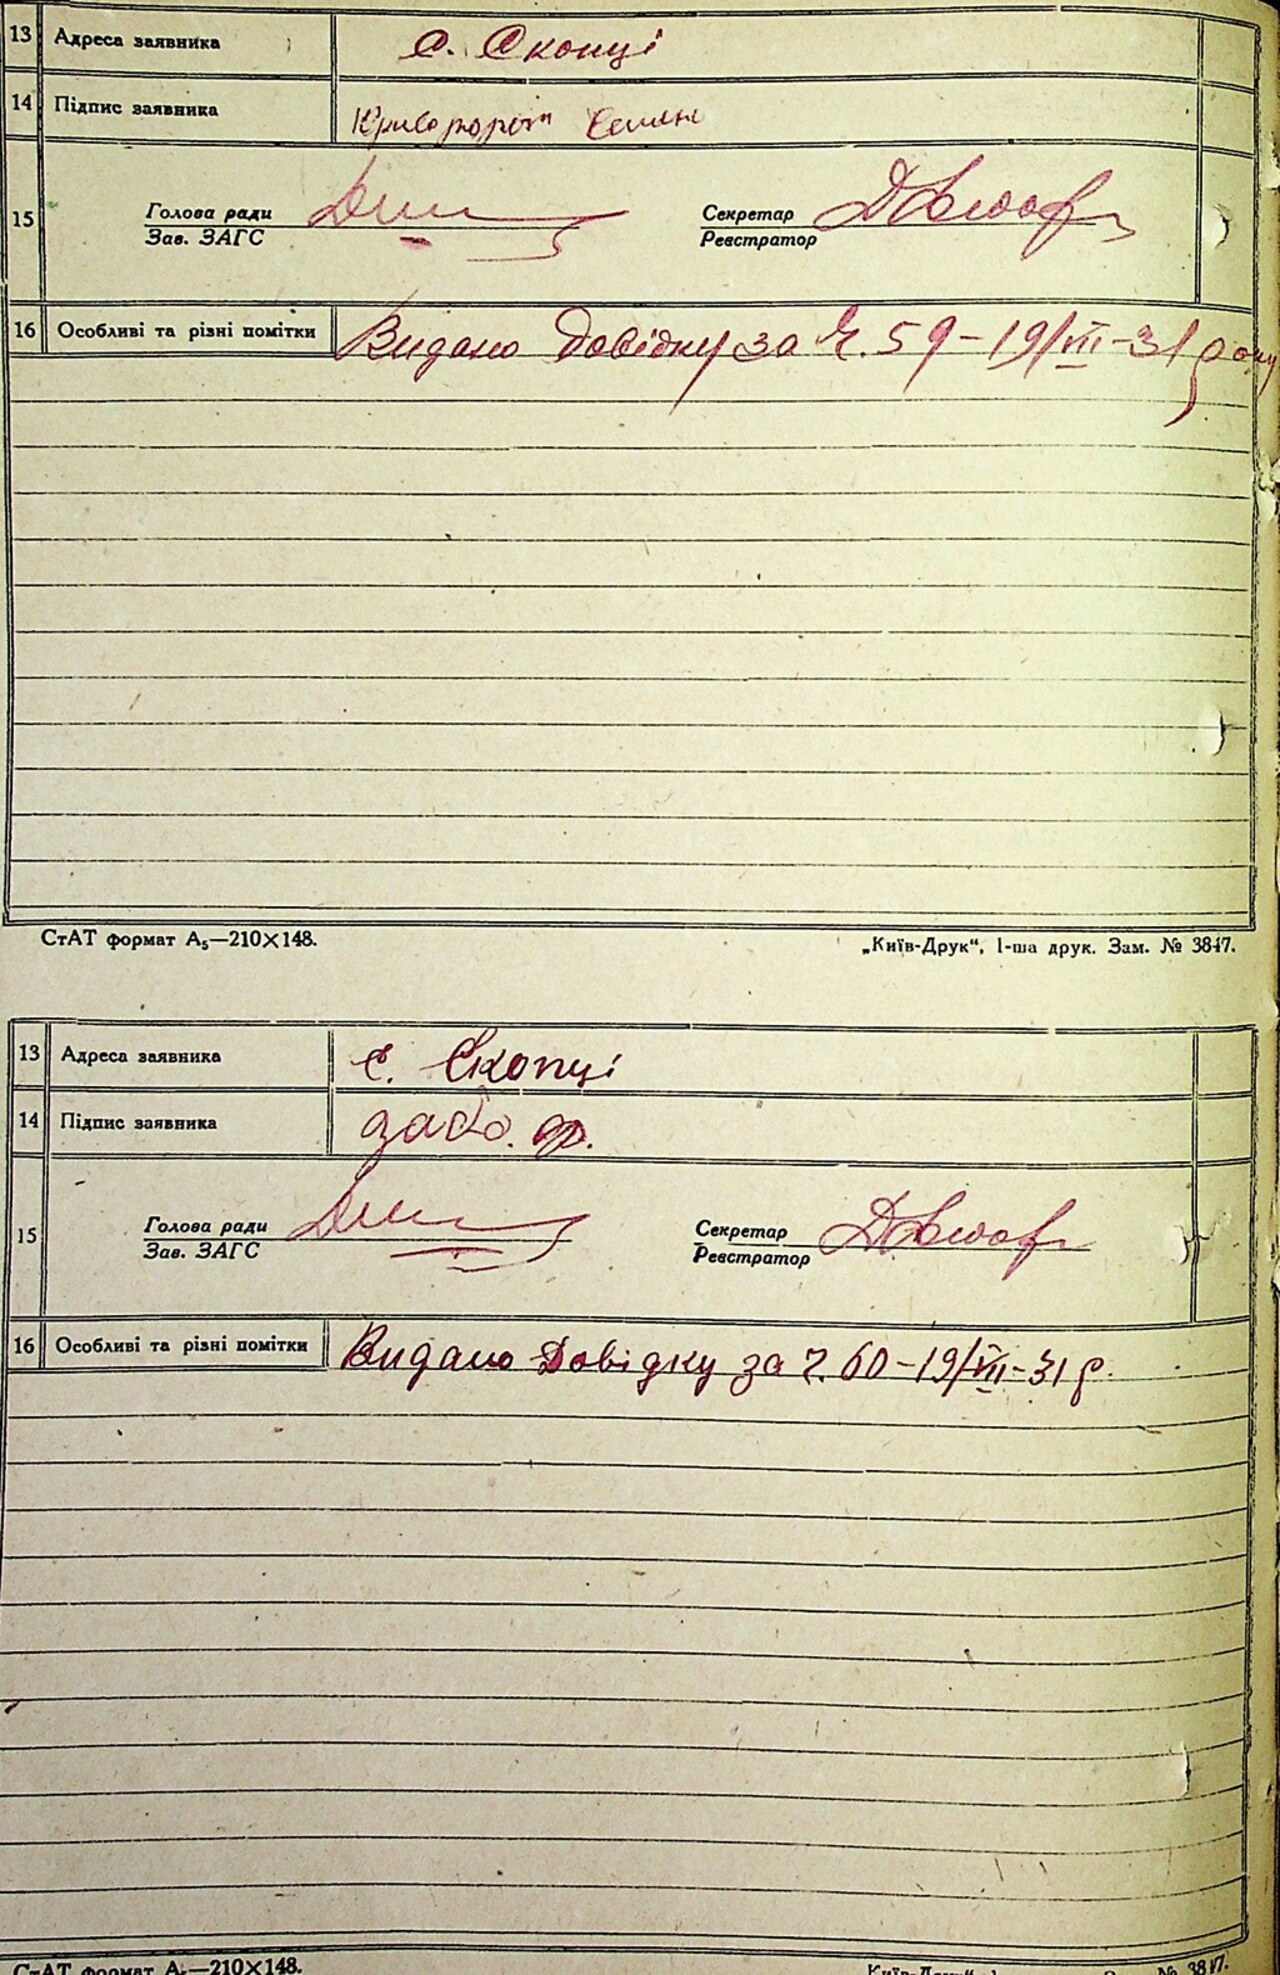 13 Адреса заявника с. Скопці
14 Підпис заявника Криворот Семен
Голова ради Секретар
15
Зав. ЗАГС Реєстратор
16 Особливі та різні помітки Видано Довідку за Ч. 59-19/VIII-31 року
СтАТ формат А₅—210×148. „Київ-Друк“, 1-ша друк. Зам. № 3847.
13 Адреса заявника с. Скопці
14 Підпис заявника
Голова ради Секретар
15
Зав. ЗАГС Реєстратор
16 Особливі та різні помітки Видано Довідку за Ч. 60-19/VIII-31 р.
СтАТ формат А₅—210×148. Київ-Друк“, № 3847.